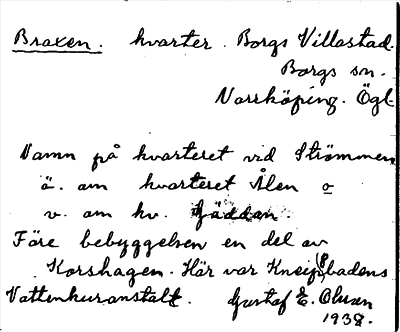 Braxen. kvarter. Borgs Villastad.
Borgs sn.
Norrköping. Ögl.
Namn på kvarteret vid Strömmen
ö. om kvarteret Ålen o
v. om kv. Gäddan.
Före bebyggelsen en del av
Korshagen. Här var Kneippbadens
Vattenkuranstalt. Gustaf E. Olsson
1938.